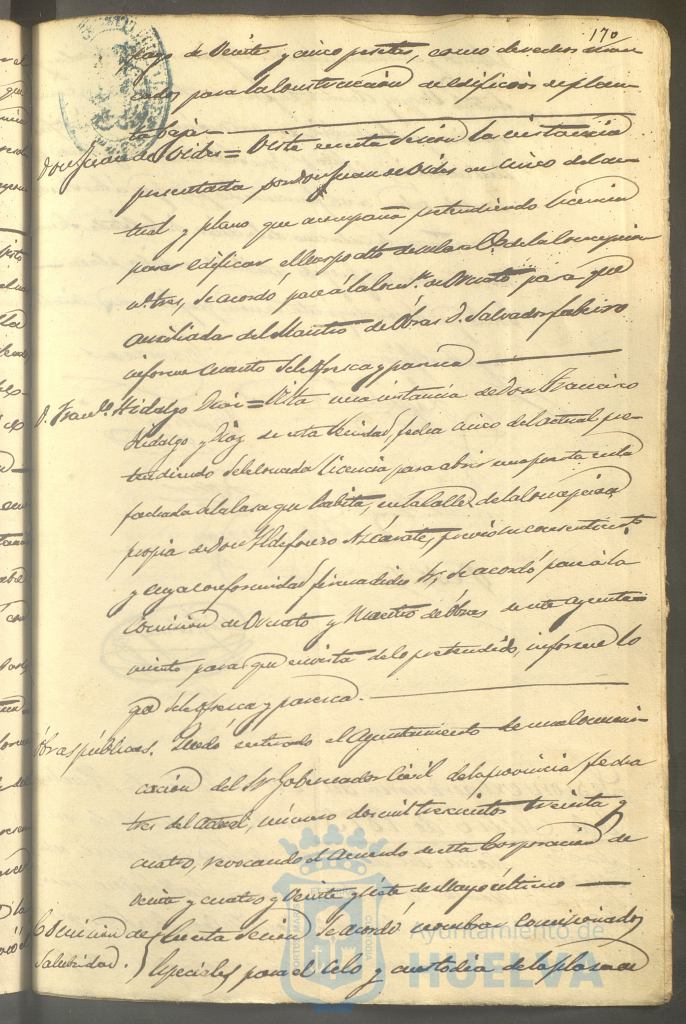 170
pago de veinte y cinco pesetas, como derechos mar-
cados para la construccion de edificios de plan-
ta baja.
Don Juan de Vides = Vista en esta Sesion la instancia
presentada por Don Juan de Vides en cinco del ac-
tual y plano que acompaña pretendiendo licencia
para edificar el cuerpo alto de su casa Calle de la Concepcion
nº. tres, Se acordó pase á la Comn. de Ornato para que
auxiliada del Maestro de Obras D. Salvador
informe cuanto se le ofrezca y parezca
D. Franco. Hidalgo Diaz = Vista una instancia de Don Francisco
Hidalgo y Diaz de esta Vecindad, fecha cinco del actual, pre-
tendiendo se le conceda licencia para abrir una puerta en la
fachada de la casa que habita, en la Calle de la Concepcion
propia de Don Ildefonso Azcárate, previo su consentimto.
y cuya conformidad firma dicho Sr., Se acordó pase á la
Comision de Ornato y Maestro de Obras de este Ayunta-
miento para que en vista de lo pretendido, informe lo
que se le ofrezca y parezca.
Obras públicas. Quedó enterado el Ayuntamiento de una comuni-
cacion del Sr. Gobernador Civil de la provincia, fecha
tres del actual, número dos mil trescientos treinta y
cuatro, revocando el Acuerdo de esta Corporacion de
veinte y cuatro y veinte y siete de Mayo último
Comision de Salubridad. En esta Sesion Se acordó nombrar Comisionados
Especiales para el Celo y custodia de las plazas
Ayuntamiento de
HUELVA